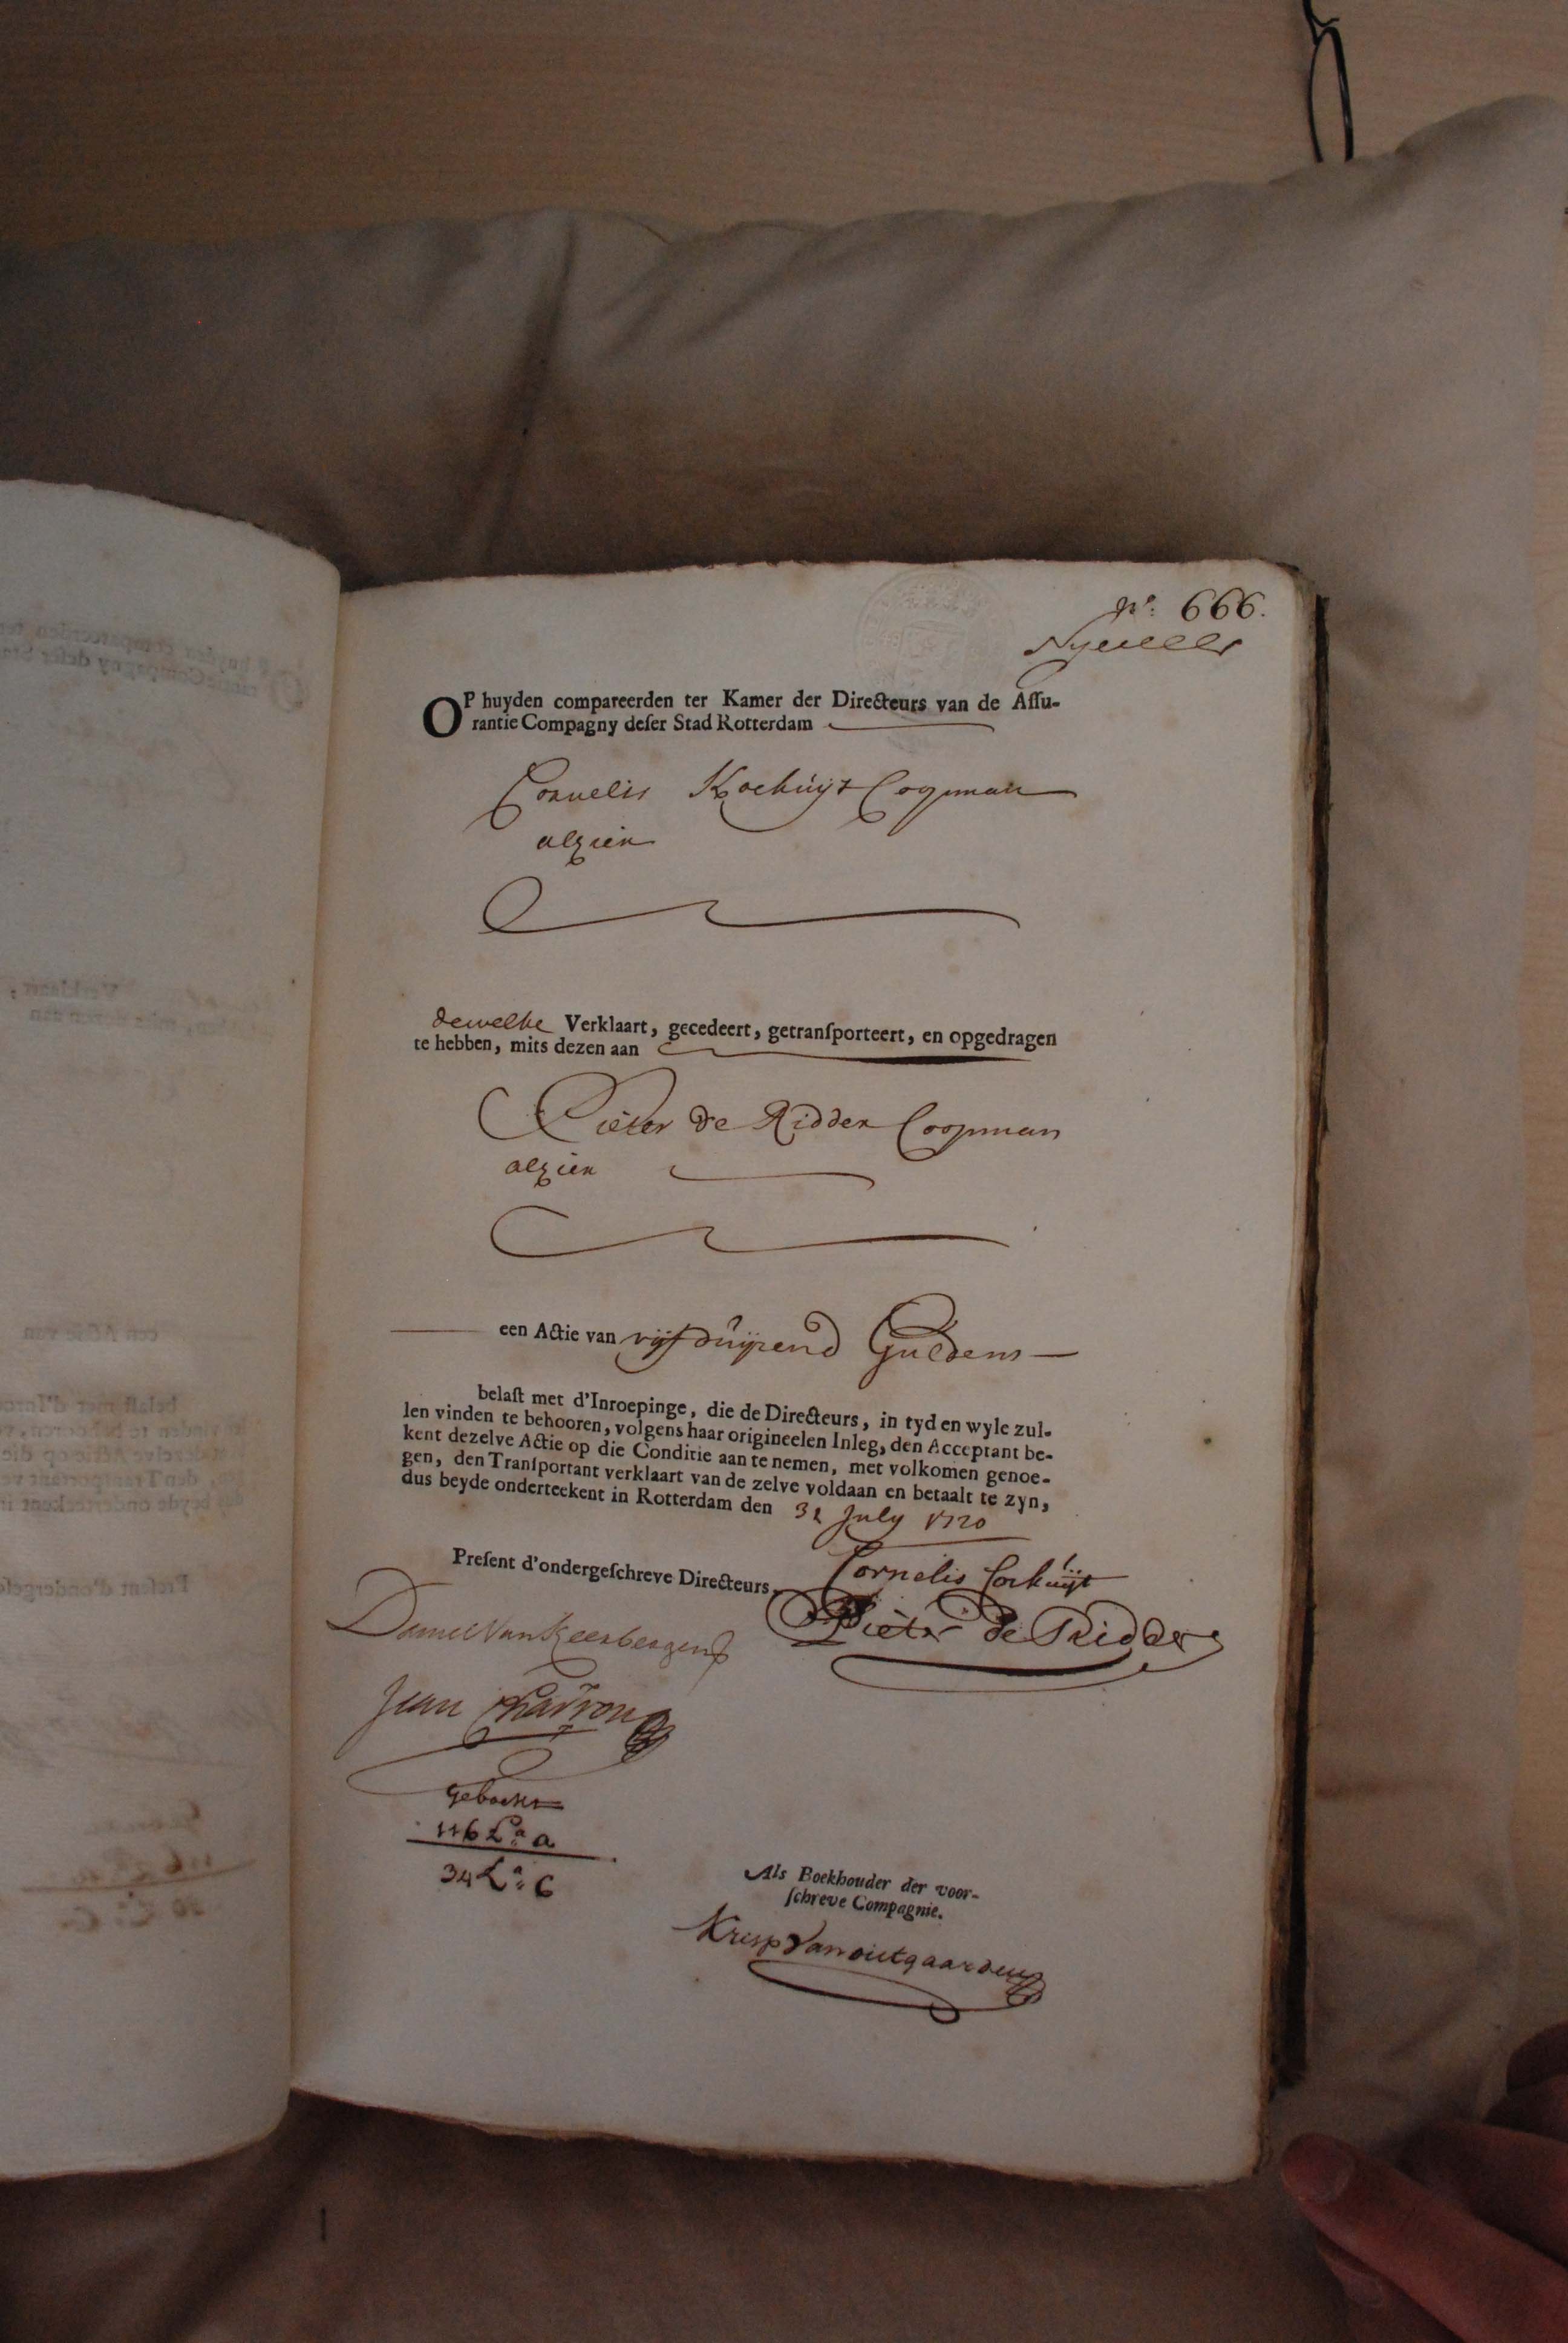 No. 666.
OP huyden compareerden ter Kamer der Directeurs van de Assu-
rantie Compagny deser Stad Rotterdam
Cornelis Kochuijt Coopman
alhier
dewelke Verklaart, gecedeert, getransporteert, en opgedragen
te hebben, mits dezen aan
Pieter de Ridder Coopman
alhier
een Actie van vijf duijzend Guldens
belast met d'Inroepinge, die de Directeurs, in tyd en wyle zul-
len vinden te behooren, volgens haar origineelen Inleg, den Acceptant be-
kent dezelve Actie op die Conditie aan te nemen, met volkomen genoe-
gen, den Transportant verklaart van de zelve voldaan en betaalt te zyn,
dus beyde onderteekent in Rotterdam den 31 July 1720
Present d'ondergeschreve Directeurs.
Cornelis Cockuijt
Pieter de Ridder
Daniel Van Keerbergen
Jean Charron
geboekt
116 La: a
34 La: C
Als Boekhouder der voor-
schreve Compagnie.
Krisp Van outgaarden